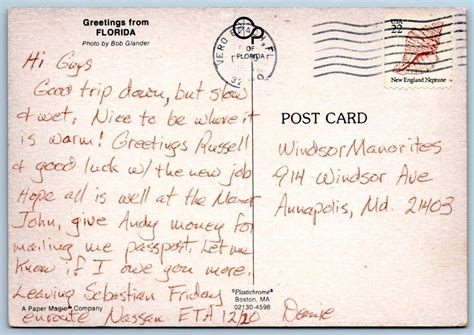 Greetings from
FLORIDA
Photo by Bob Glander
OF
FLORIDA
VERO BEACH, FL
USA
22
New England Neptune
Hi Guys
Good trip down, but slow
& wet. Nice to be where it
is warm! Greetings Russell
& good luck w/ the new job
Hope all is well at the Manor
John, give Andy money for
mailing me passport. Let me
know if I owe you more.
Leaving Sebastian Friday
enroute Nassau ETA 12/20
POST CARD
Windsor Manorites
914 Windsor Ave
Annapolis, Md. 21403
A Paper Magic Company
"Plastichrome"
Boston, MA
02130-4598